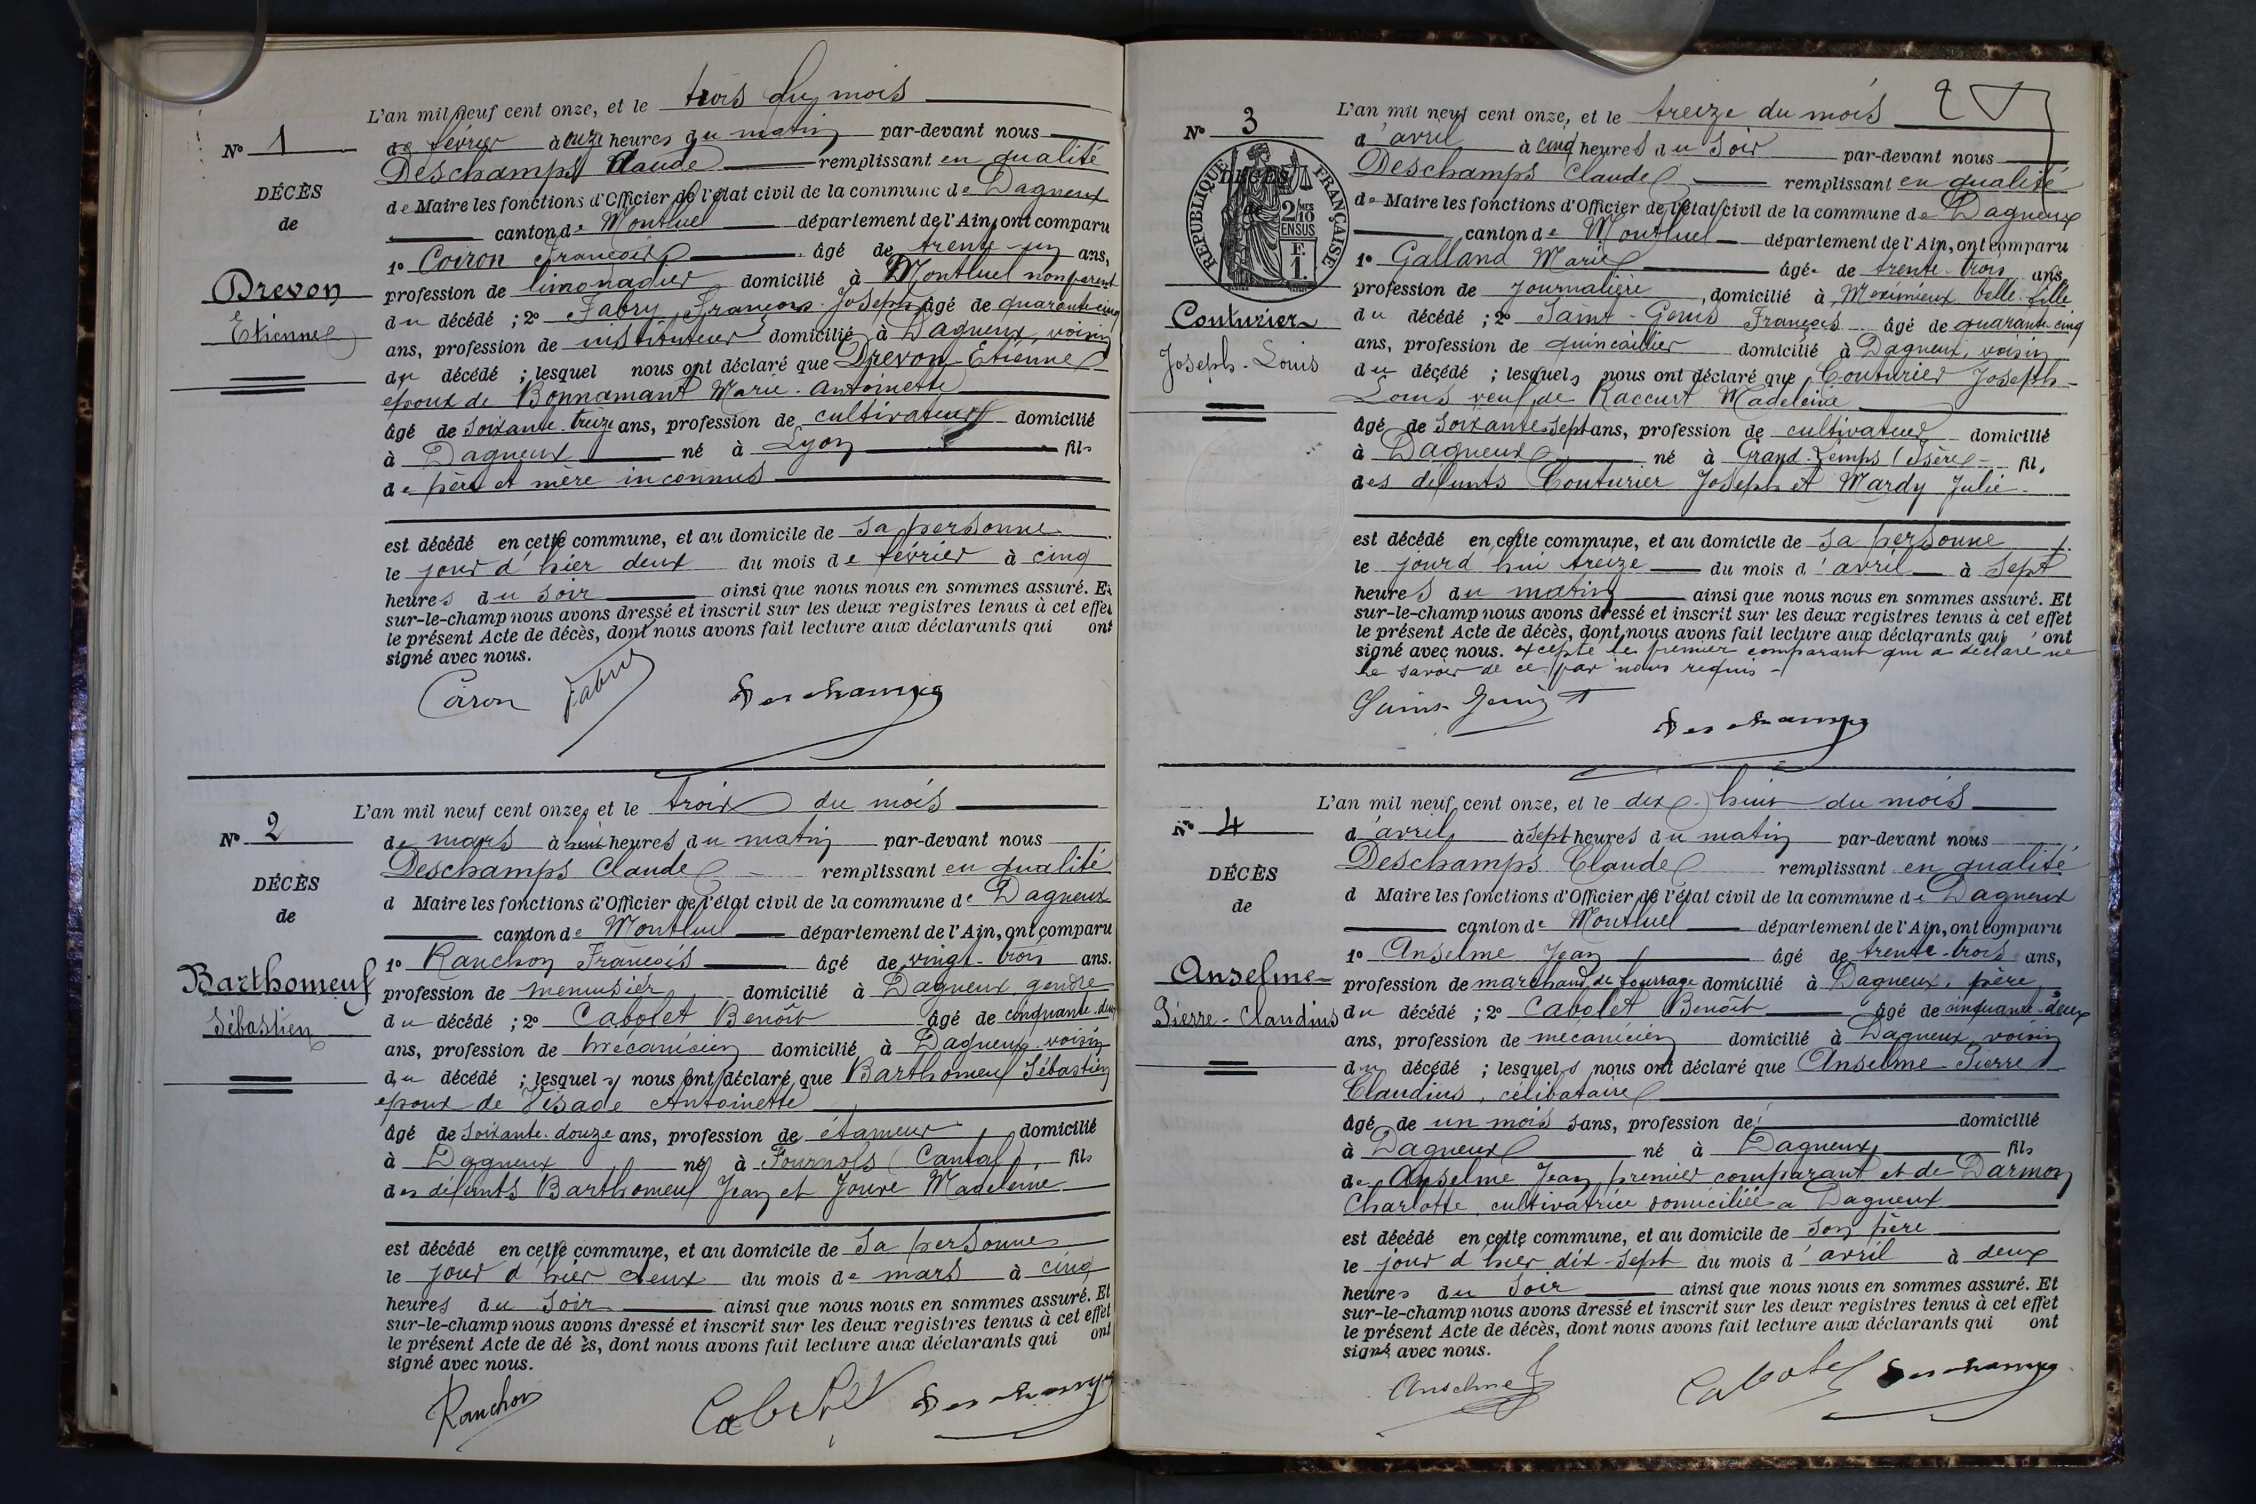 L'an mil neuf cent onze, et le trois du mois
N° 1
de février à onze heures du matin par-devant nous
Deschamps Claude remplissant en qualité
DÉCÈS
de Maire les fonctions d'Officier de l'état civil de la commune de Dagneux
de
canton de Montluel département de l'Ain, ont comparu
1° Coiron François âgé de trente-un ans,
Drevon
profession de limonadier domicilié à Montluel non parent
du décédé ; 2° Fabry François-Joseph âgé de quarante-cinq
Etienne
ans, profession de instituteur domicilié à Dagneux, voisin
du décédé ; lesquel nous ont déclaré que Drevon Etienne
époux de Bonnamant Marie-Antoinette
âgé de soixante-treize ans, profession de cultivateur domicilié
à Dagneux né à Lyon fils
de père et mère inconnus
est décédé en cette commune, et au domicile de sa personne
le jour d'hier deux du mois de février à cinq
heures du soir ainsi que nous nous en sommes assuré. Et
sur-le-champ nous avons dressé et inscrit sur les deux registres tenus à cet effet
le présent Acte de décès, dont nous avons fait lecture aux déclarants qui ont
signé avec nous.
Coiron Fabry Deschamps
L'an mil neuf cent onze, et le trois du mois
N° 2
de mars à huit heures du matin par-devant nous
Deschamps Claude remplissant en qualité
DÉCÈS
d Maire les fonctions d'Officier de l'état civil de la commune de Dagneux
de
canton de Montluel département de l'Ain, ont comparu
1° Ranchon François âgé de vingt-trois ans.
Barthomeuf
profession de menuisier domicilié à Dagneux gendre
Sébastien
du décédé ; 2° Cabolet Benoît âgé de cinquante-deux
ans, profession de mécanicien domicilié à Dagneux voisin
du décédé ; lesquels nous ont déclaré que Barthomeuf Sébastien
époux de Visade Antoinette
âgé de soixante-douze ans, profession de étameur domicilié
à Dagneux né à Fournols (Cantal), fils
des défunts Barthomeuf Jean et Jouve Madeleine
est décédé en cette commune, et au domicile de sa personne
le jour d'hier deux du mois de mars à cinq
heures du soir ainsi que nous nous en sommes assuré. Et
sur-le-champ nous avons dressé et inscrit sur les deux registres tenus à cet effet
le présent Acte de dé ès, dont nous avons fait lecture aux déclarants qui ont
signé avec nous.
Ranchon Cabolet Deschamps
2
L'an mil neuf cent onze, et le treize du mois
N° 3
d'avril à cinq heures du soir par-devant nous
Deschamps Claude remplissant en qualité
RÉPUBLIQUE FRANÇAISE
DÉCÈS
de
2/10 MES
EN SUS
F.
1.
de Maire les fonctions d'Officier de l'état civil de la commune de Dagneux
canton de Montluel département de l'Ain, ont comparu
1° Galland Marie âgée de trente-trois ans,
profession de journalière, domicilié à Meximieux belle-fille
Couturier
du décédé ; 2° Saint-Genis François âgé de quarante-cinq
ans, profession de quincaillier domicilié à Dagneux, voisin
Joseph-Louis
du décédé ; lesquels nous ont déclaré que Couturier Joseph-
Louis veuf de Raccurt Madeleine
âgé de soixante-sept ans, profession de cultivateur domicilié
à Dagneux né à Grand-Lemps (Isère) fils
des défunts Couturier Joseph et Mardy Julie
est décédé en cette commune, et au domicile de sa personne
le jourd'hui treize du mois d'avril à sept
heures du matin ainsi que nous nous en sommes assuré. Et
sur-le-champ nous avons dressé et inscrit sur les deux registres tenus à cet effet
le présent Acte de décès, dont nous avons fait lecture aux déclarants qui ont
signé avec nous. excepté le premier comparant qui a déclaré ne
le savoir de ce par nous requis
Saint-Genis F Deschamps
L'an mil neuf cent onze, et le dix-huit du mois
N° 4
d'avril à sept heures du matin par-devant nous
Deschamps Claude remplissant en qualité
DÉCÈS
d Maire les fonctions d'Officier de l'état civil de la commune de Dagneux
de
canton de Montluel département de l'Ain, ont comparu
1° Anselme Jean âgé de trente-trois ans,
Anselme
profession de marchand de fourrage domicilié à Dagneux, père
Pierre-Claudius
du décédé ; 2° Cabolet Benoît âgé de cinquante-deux
ans, profession de mécanicien domicilié à Dagneux, voisin
du décédé ; lesquels nous ont déclaré que Anselme Pierre
Claudius, célibataire
âgé de un mois sans, profession de domicilié
à Dagneux né à Dagneux fils
de Anselme Jean premier comparant et de Darmon
Charlotte, cultivatrice domiciliée à Dagneux
est décédé en cette commune, et au domicile de son père
le jour d'hier dix-sept du mois d'avril à deux
heures du soir ainsi que nous nous en sommes assuré. Et
sur-le-champ nous avons dressé et inscrit sur les deux registres tenus à cet effet
le présent Acte de décès, dont nous avons fait lecture aux déclarants qui ont
signé avec nous.
Anselme J Cabolet Deschamps